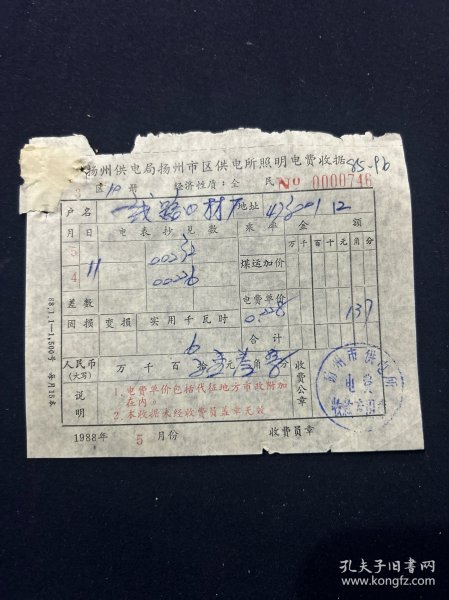 扬州供电局扬州市区供电所照明电费收据 85-96
区 10 册 经济性质：全 民 No 0000746
户名 地址 12
月 日 电表抄见数 乘率 金额
万 千 百 十 元 角 分
5 00232 煤运加价
4 11 00226
差数 电费单价 0.228 137
固损 变损 实用千瓦时 合计
6
人民币(大写) 万 千 百 拾 元 角 分 收费公章
说明 1.电费单价包括代征地方市政附加在内。
2.本收据未经收费员盖章无效
1988年 5 月份 收费员章
88.1.1—1,500号 每月15本
扬州市供电所
电费
孔夫子旧书网
www.kongfz.com